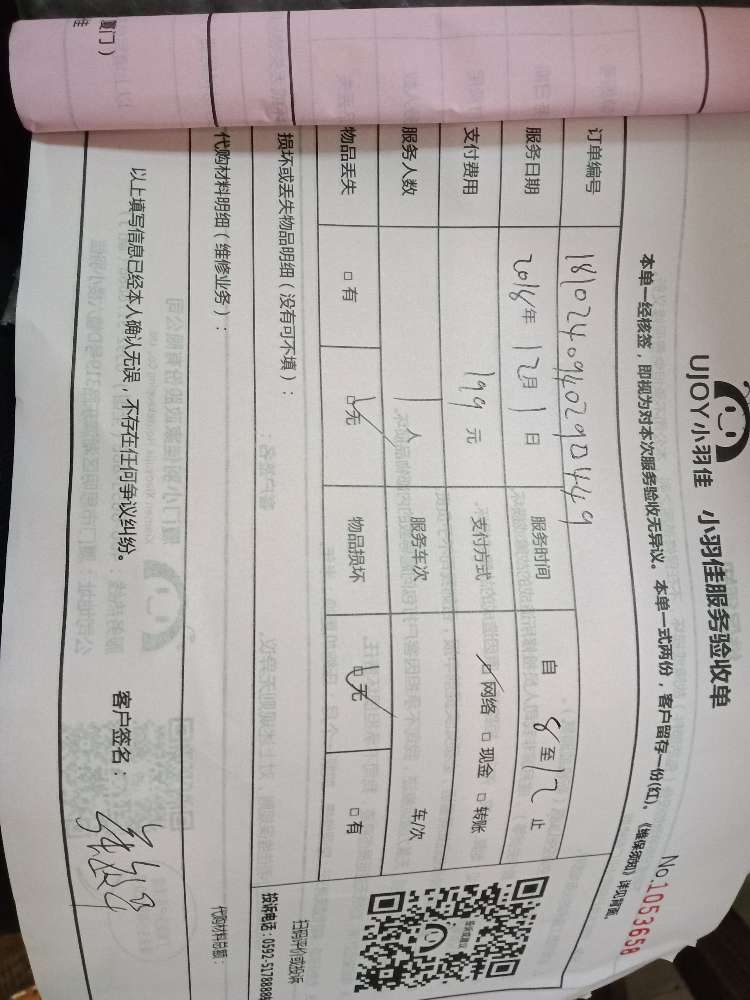 UJOY小羽佳 小羽佳服务验收单
No.1053658
本单一经核签，即视为对本次服务验收无异议。本单一式两份，客户留存一份(红)。《维保须知》详见背面。
订单编号 181024094029044449
服务日期 2018年 12月 1日 服务时间 自 8至12止
支付费用 199元 支付方式 ☑网络 □现金 □转账
服务人数 1人 服务车次 车/次
物品丢失 □有 ☑无 物品损坏 ☑无 □有
损坏或丢失物品明细（没有可不填）：
扫码评价或投诉
投诉电话：0592-5178888
代购材料明细（维修业务）：
代购材料总额：
以上填写信息已经本人确认无误，不存在任何争议纠纷。
客户签名：
厦门）